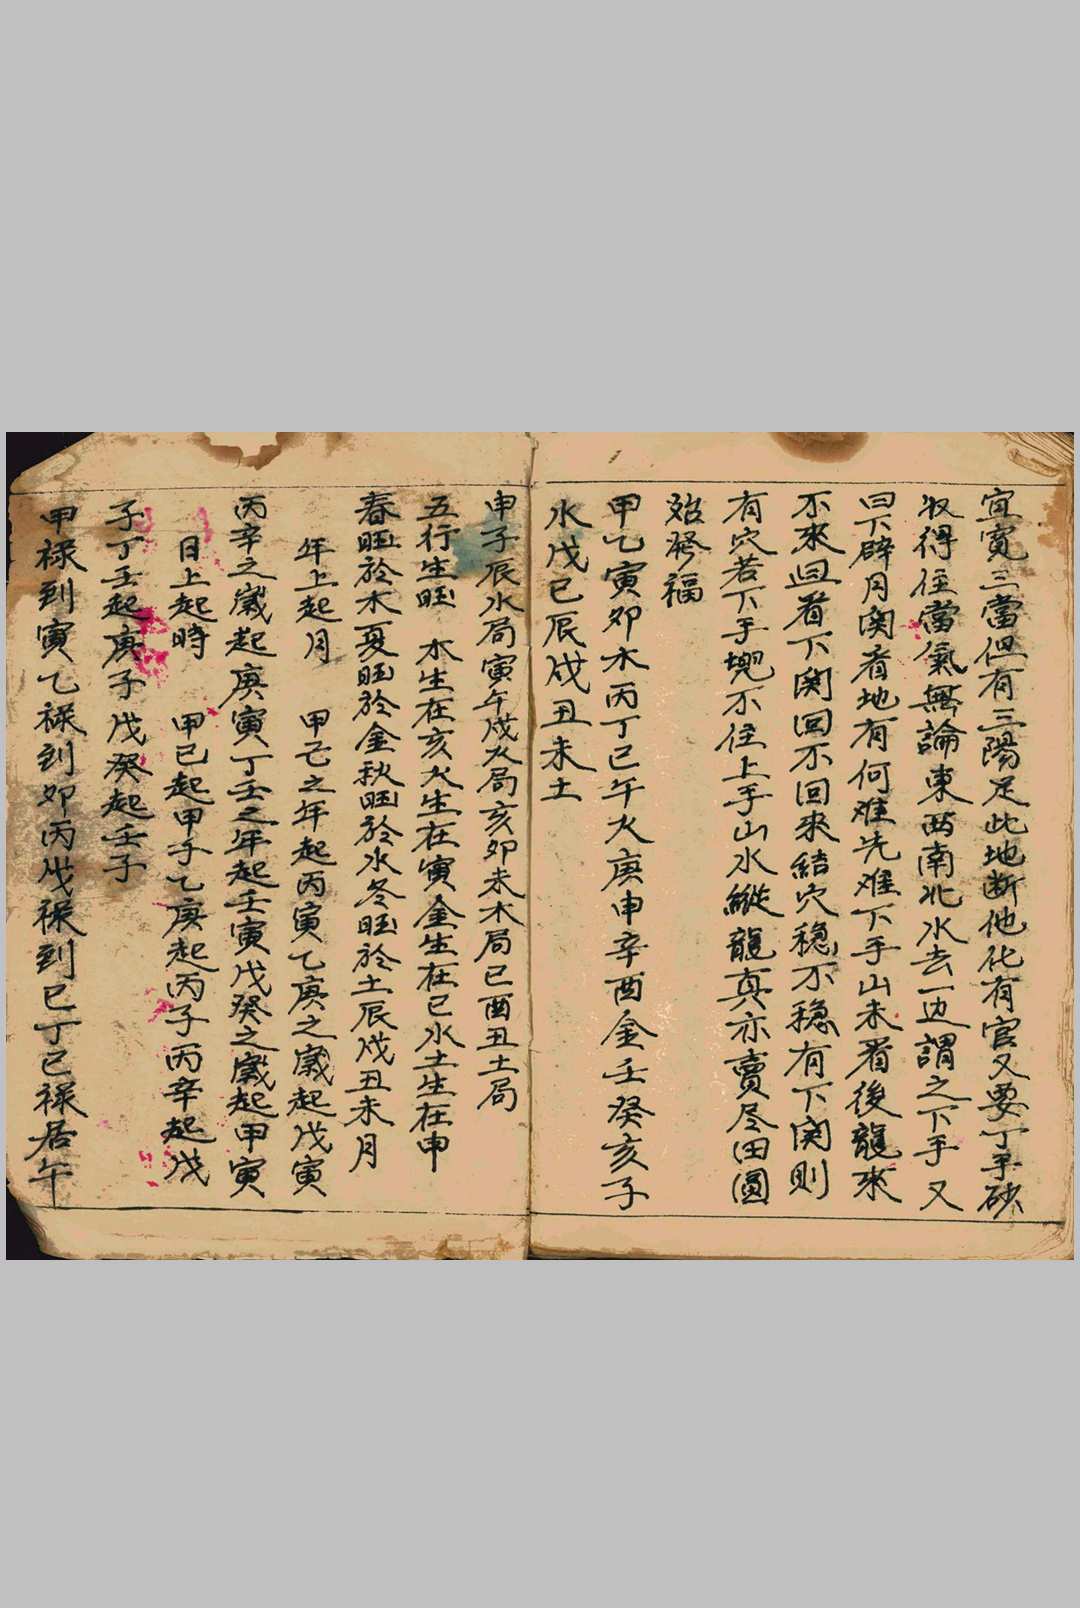 宜寬三當但有三陽足此地断他化有官又要丁手砂
收得住當氣無論東西南北水去一边謂之下手又
曰下辟月関看地有何难先难下手山未看後龍來
不來迴看下関回不回來結穴稳不稳有下関則
有穴若下手堄不住上手山水縱龍真亦賣尽田園
始發福
甲乙寅卯木丙丁巳午火庚申辛酉金壬癸亥子
水戊己辰戌丑未土
申子辰水局寅午戌火局亥卯未木局巳酉丑土局
五行生旺 木生在亥火生在寅金生在巳水土生在申
春旺於木夏旺於金秋旺於水冬旺於土辰戌丑未月
年上起月 甲己之年起丙寅乙庚之歲起戊寅
丙辛之歲起庚寅丁壬之年起壬寅戊癸之歲起甲寅
日上起時 甲己起甲子乙庚起丙子丙辛起戊
子丁壬起庚子戊癸起壬子
甲禄到寅乙禄到卯丙戊禄到巳丁己禄居午